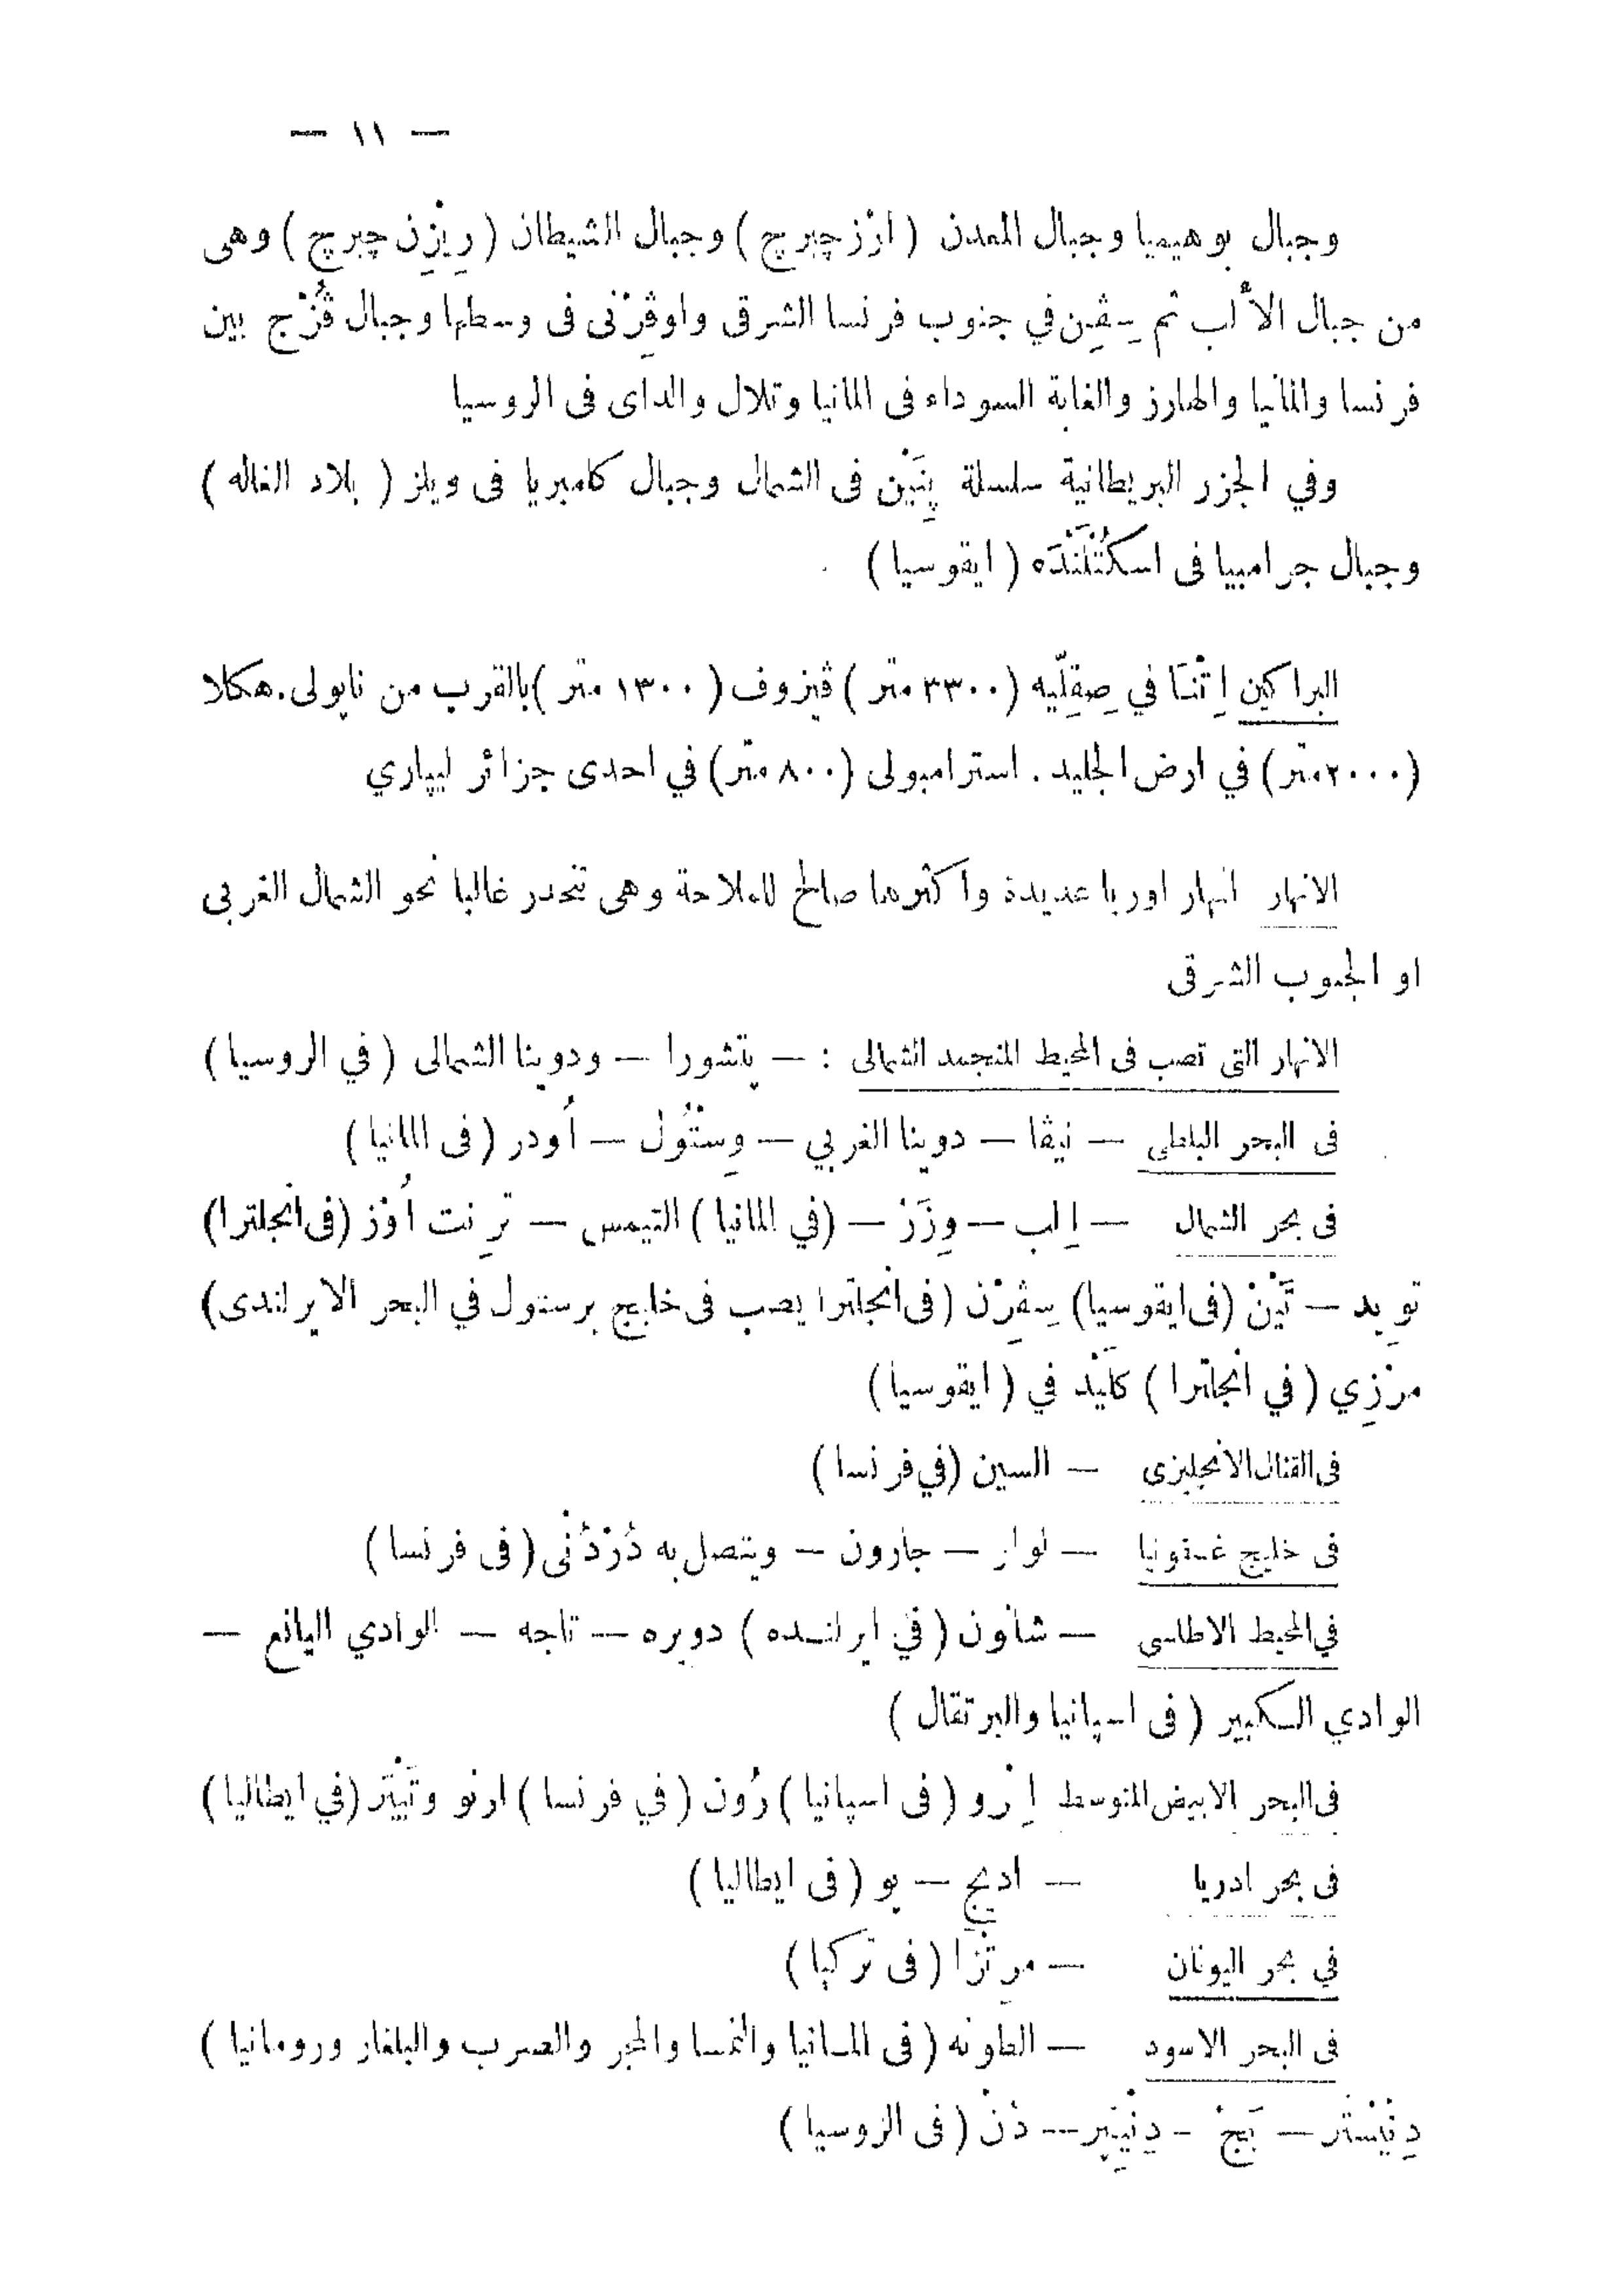 — ١١ —
وجبال بوهيميا وجبال المعدن ( ارْز چبرچ ) وجبال الشيطان ( رِيْزِن چبرچ ) وهى
من جبال الألب ثم سِڤِين في جنوب فرنسا الشرقى واوڤِرْنى فى وسطها وجبال ڤُزْج بين
فرنسا والمانيا والهارز والغابة السوداء فى المانيا وتلال والداى فى الروسيا
وفي الجزر البريطانية سلسلة پِنَيْن فى الشمال وجبال كامبريا فى ويلز ( بلاد الغاله )
وجبال جرامبيا فى اسكُتْلَنْدَه ( ايقوسيا )
البراكين اِتْنَا في صِقِلّيه (٣٣٠٠ متر ) ڤيزوف ( ١٣٠٠ متر )بالقرب من ناپولى. هكلا
(٢٠٠٠متر) في ارض الجليد . استرامبولى (٨٠٠ متر) في احدى جزائر ليپاري
الانهار انهار اوربا عديدة واكثرها صالح للملاحة وهى تنحدر غالبا نحو الشمال الغربى
او الجنوب الشرقى
الانهار التى تصب فى المحيط المتجمد الشمالى : — پتشورا — ودوينا الشمالى ( في الروسيا )
فى البحر البلطى — نيڤا — دوينا الغربي — وِسْتُول — أودر ( فى المانيا )
فى بحر الشمال — اِلب — وِزَرْ — (في المانيا ) التيمس — ترِنت أوْز (فى انجلترا)
توِيد — تَيْنْ (فى ايقوسيا) سِڤِرْن ( فى انجلترا يصب فى خليج برستول في البحر الايرلندى)
مرْزِي ( في انجلترا ) كلَيْد في ( ايقوسيا )
فى القنال الانجليزى — السين (في فرنسا )
فى خليج غسقونيا — لوار — جارون — ويتصل به دُرْدُنْى ( فى فرنسا )
في المحيط الاطلسى — شانون ( في ايرلنـده ) دويره — تاجه — الوادي اليانع —
الوادي الـكبير ( فى اسپانيا والبرتقال )
فى البحر الابيض المتوسط اِبْرو ( فى اسپانيا ) رُون ( في فرنسا ) ارنو وتَيْبَر (في ايطاليا )
فى بحر ادريا — اديچ — پو ( فى ايطاليا )
في بحر اليونان — مرِتْزا ( فى تركيا )
فى البحر الاسود — الطونه ( فى المـانيا والنمسا والمجر والصرب والبلغار ورومانيا )
دِنْيَسْتَر — بَجْ — دِنْيِپَر — دُنْ ( فى الروسيا )